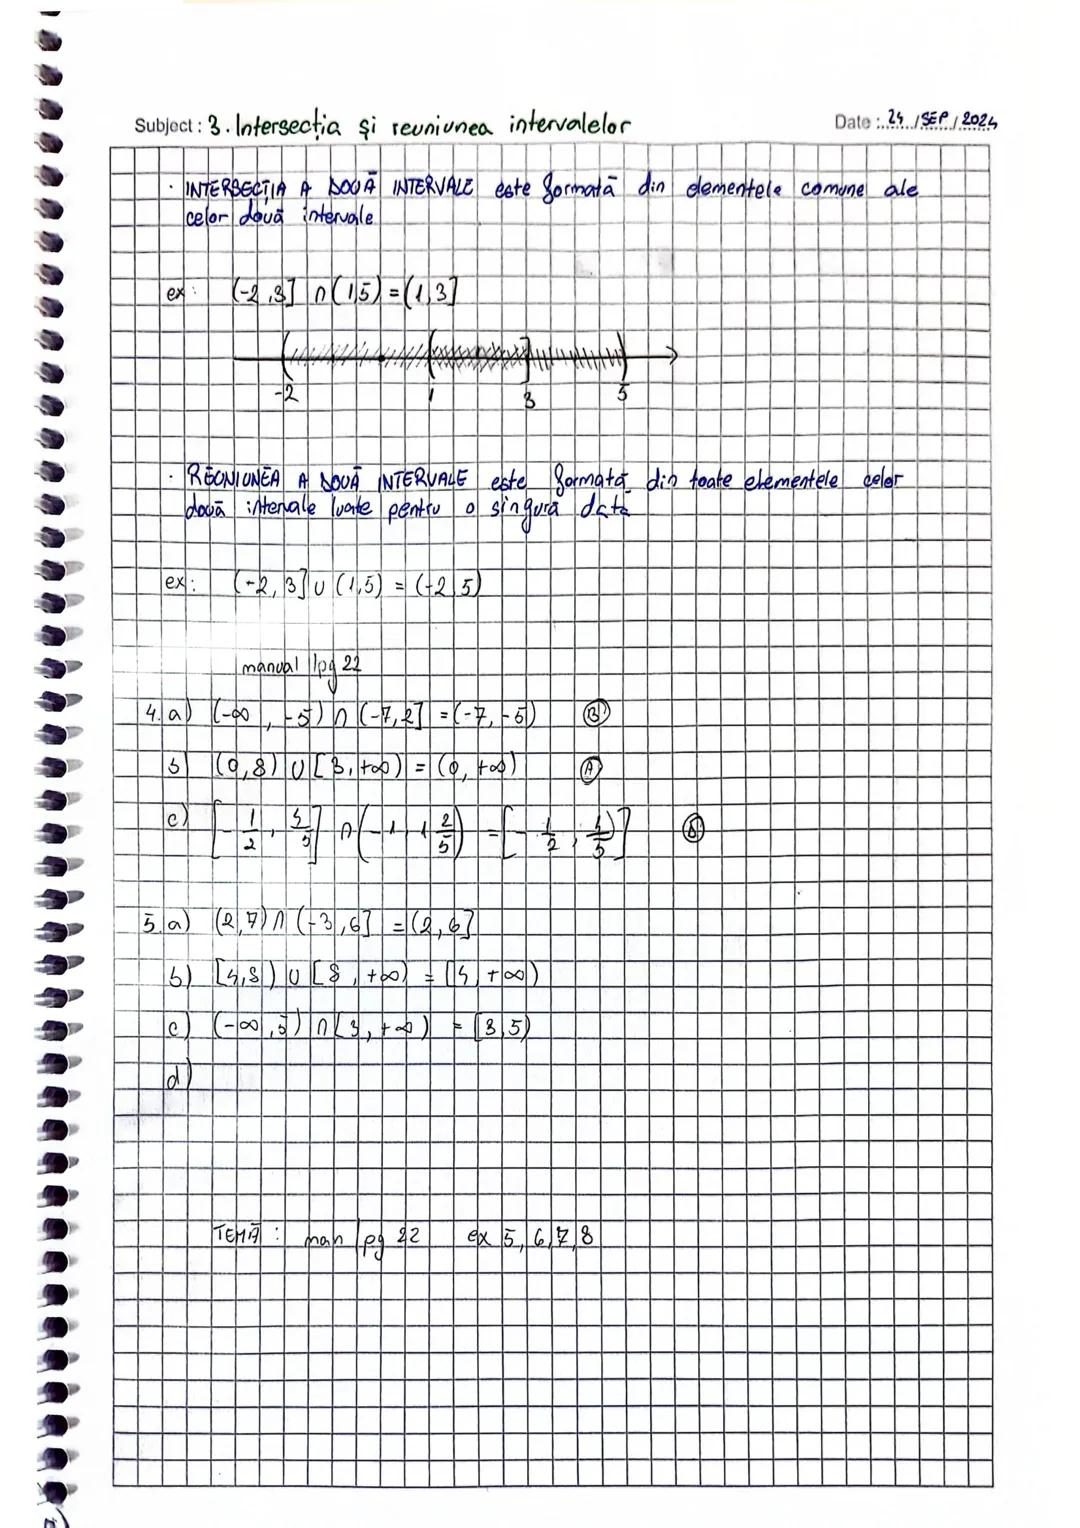 Subject : 3. Intersecția și reuniunea intervalelor
Date : 24 / SEP / 2024
· INTERSECȚIA A DOUĂ INTERVALE este formată din elementele comune ale
celor două intervale
ex: (-2,3] ∩ (1,5) = (1,3]
-2 1 3 5
· REUNIUNEA A DOUĂ INTERVALE este formată din toate elementele celor
două intervale luate pentru o singură dată
ex: (-2,3] ∪ (1,5) = (-2,5)
manual /pg 22
4. a) (-∞, -5) ∩ (-7,2] = (-7,-5) B
b) (0,8) ∪ [3,+∞) = (0,+∞) A
c) [-1/2, 4/5] ∩ (-1, 1 2/5) = [-1/2, 4/5]
5. a) (2,7) ∩ (-3,6] = (2,6]
b) [4,8) ∪ [8,+∞) = [4,+∞)
c) (-∞,5) ∩ [3,+∞) = [3,5)
d)
TEMĂ : man /pg 22 ex 5, 6, 7, 8